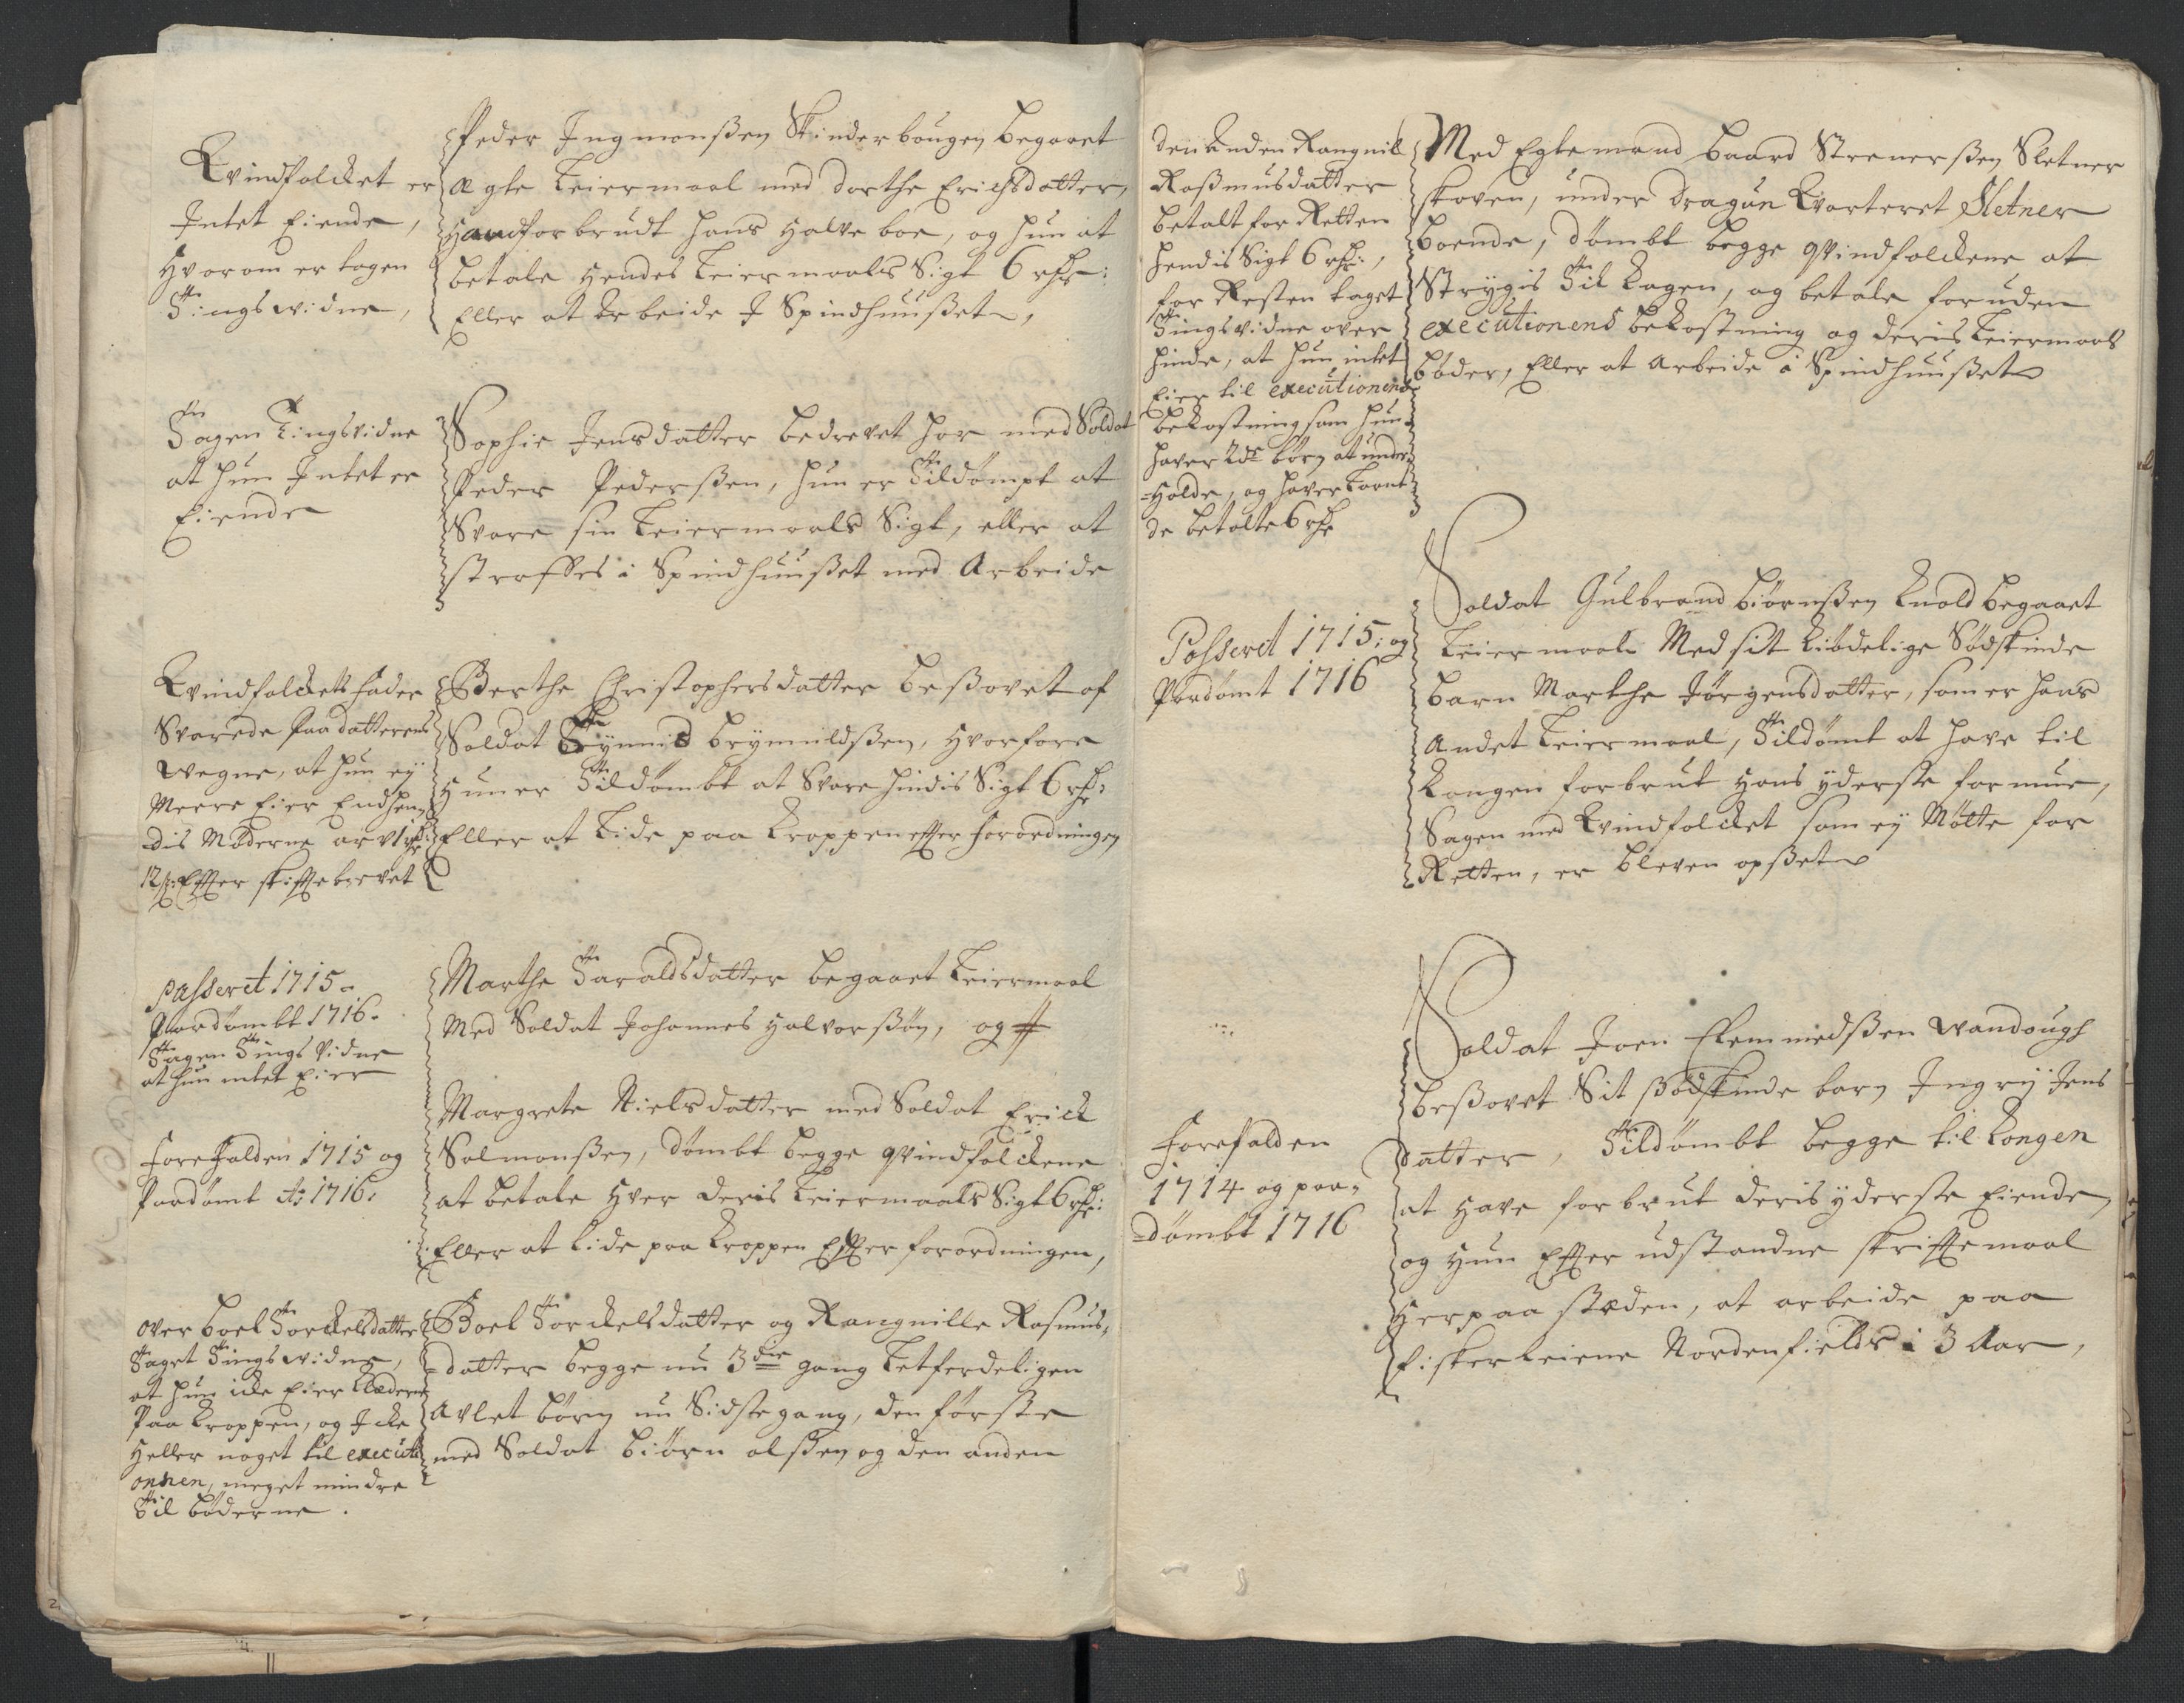 Kvindfolcket er
Intet Eiende,
Hvorom er tagen
Tingsvidne,
Peder Ingmonsßen Skinderhougen begaaet
ægte Leiermaal med dorthe Erichsdatter,
Hand forbrudt hans halve boe, og hun at
betale hendes Leiermaals Sigt 6 rdr:
Eller at Arbeide I Spindhuußet,
Tagen Tingsvidne
at hun Intet er
Eiende
Sophie Jensdatter bedrevet hor med Soldat
Peder Pederßen, hun er Tildømpt at
Svare sin Leiermaals Sigt, eller at
straffes i Spindhuußet med Arbeide
Kvindfolckets fader
Svarede paa datterens
Wegne, at hun ey
Meere Eier End hen-
dis Møderne arv 1 rdr:
12 s: Efter skiftebrevet
Berthe Christophersdatter besßovet af
Soldat Brÿnnild brÿnnildsßen, hvorfore
hun er Tildømbt at Svare hindis Sigt 6 rdr:
Eller at Lide paa Kroppen efter forordningen
passeret 1715.
Paadømbt 1716.
Tagen Tings Vidne
at hun intet Eier
Marthe Taraldsdatter begaaet Leiermaal
Med Soldat Johannes Halvorsßøn, og
Forefalden 1715 og
Paadømt Ao: 1716.
Margrete Nielsdatter med Soldat Erick
Salmonsßen, dømbt begge qvindfolckene
at betale hver deris Leiermaals Sigt 6 rdr:
Eller at Lide paa Kroppen Efter forordningen,
over Boel Torckelsdatter
Taget Tingsvidne,
at hun icke Eier Klæderne
Paa Kroppen, og Icke
Heller noget til executi
onnen, meget mindre
Til bøderne.
Boel Torckelsdatter og Rangnille Rasmus-
datter begge nu 3die gang Letferdeligen
Avlet børn nu Sidste gang, den første
med Soldat Biørn olsßen og den anden
den Anden Rangnild
Raßmusdatter
betalt for Retten
hendis Sigt 6 rdr:,
for Resten taget
Tingsvidne over
hinde, at hun intet
Eier til executionens
bekostning som hun
haver 2de børn at under-
Holde, og haver Laant
de betalte 6 rdr
Med Egtemand baard Steenersßen Sletner
skoven, under Dragun Kvarteret Sletner
boende, dømbt begge qvindfolckene at
Strygis Til Kagen, og betale foruden
executionens bekostning og deris Leiermaals
bøder, Eller at Arbeide i Spindhuußet
Passeret 1715: og
Paadømt 1716
Soldat Gulbrand Biørnsßen Knold begaaet
Leiermaal Med sit Kiødelige Sødskinde
barn Marthe Jørgensdatter, som er hans
Andet Leiermaal, Tildømt at have til
Kongen forbrut hans ÿderste formue,
Sagen med Kvindfolcket som eÿ Møtte for
Retten, er bleven opßet
Forefalden
1714 og paa-
dømbt 1716
Soldat Joen Clemmedsßen Wandough
besßovet Sit ßødskinde barn Ingrij Jens
datter, Tildømbt begge til Kongen
at have forbrut deris ÿderste Eiende,
og hun Efter udstandne skriftemaal
herpaa stæden, at arbeide paa
fiskerleiene Nordenfields i 3 Aar,